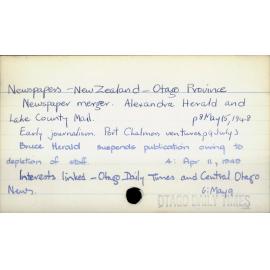 Newspapers - New Zealand - Otago Province
Newspaper merger. Alexandra Herald and
Lake County Mail. p8 May 15, 1948
Early journalism. Port Chalmers ventures p9 July 3
Bruce Herald suspends publication owing to
depletion of staff. 4: Apr 11, 
Interests linked - Otago Daily Times and Central Otago
News. 6: May 9
OTAGO DAILY TIMES